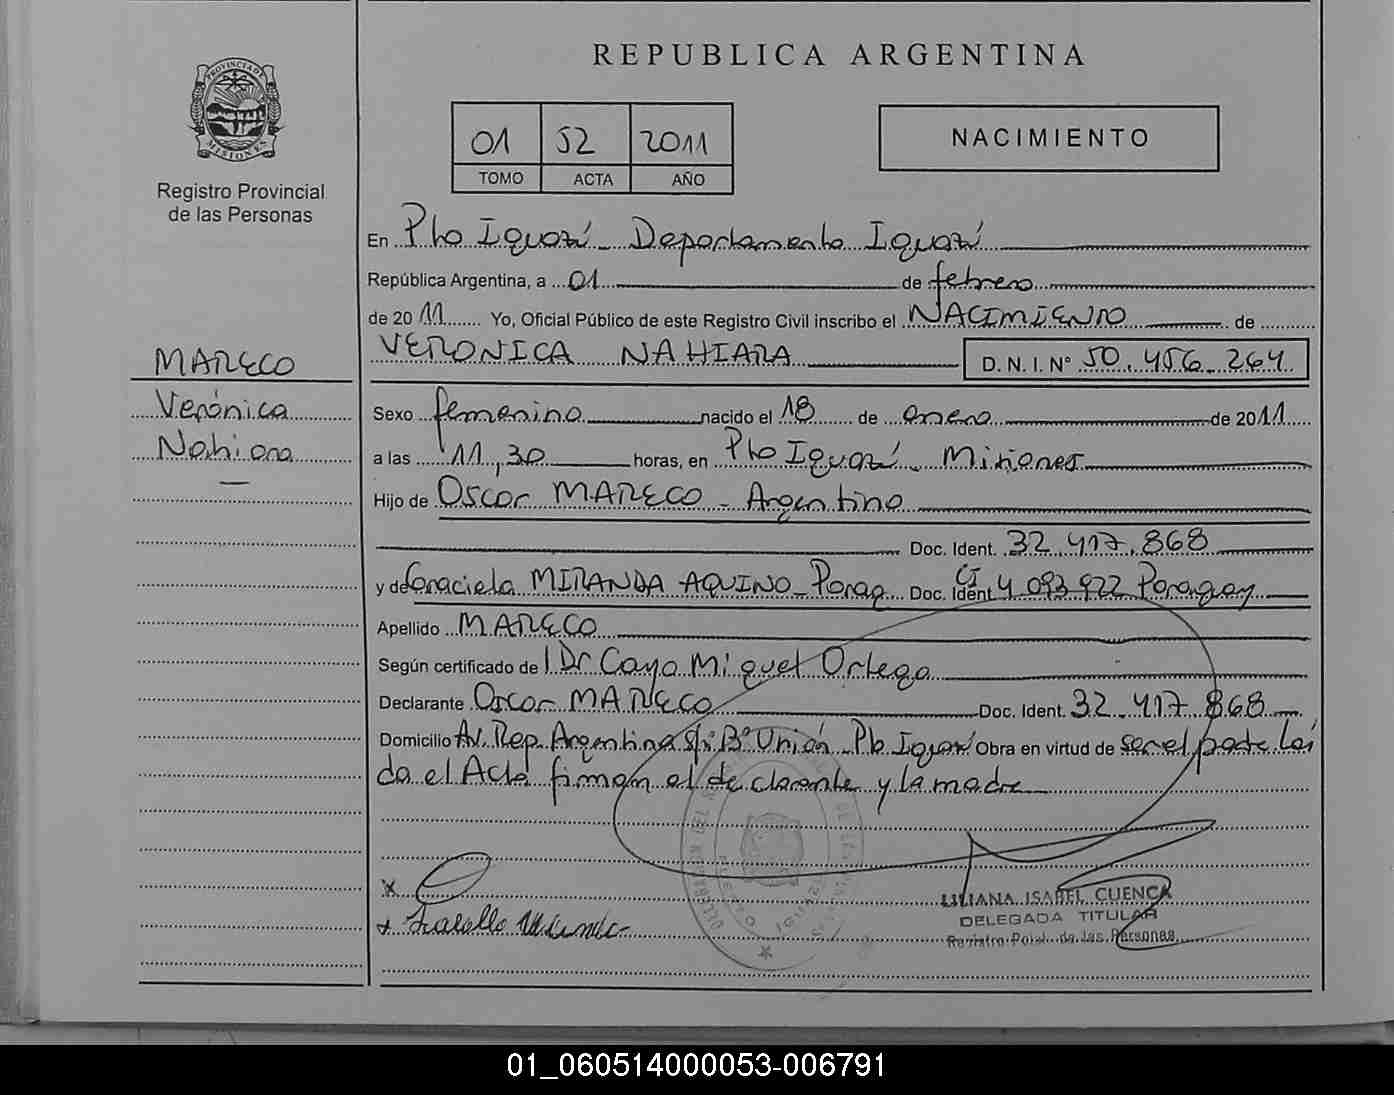 REPUBLICA ARGENTINA
PROVINCIA DE
MISIONES
Registro Provincial
de las Personas
01 52 2011
TOMO ACTA AÑO
NACIMIENTO
En Pto Iguazú - Departamento Iguazú
República Argentina, a 01 de febrero
de 2011 Yo, Oficial Público de este Registro Civil inscribo el NACIMIENTO de
VERONICA NAHIARA D. N. I. Nº 50.456.264
MARECO
Verónica
Nahiara
Sexo femenino nacido el 18 de enero de 2011
a las 11,30 horas, en Pto Iguazú - Misiones
Hijo de Oscar MARECO - Argentino
Doc. Ident. 32.417.868
y de Graciela MIRANDA AQUINO - Parag Doc. Ident. CI 4 093 922 Paraguay
Apellido MARECO
Según certificado de Dr Cayo Miguel Ortega
Declarante Oscar MARECO Doc. Ident. 32.417.868
Domicilio Av. Rep. Argentina s/nº Bº Unión Pto Iguazú Obra en virtud de ser el padre Leí
da el Acta firman el declarante y la madre
LILIANA ISABEL CUENCA
DELEGADA TITULAR
Registro Pcial. de las Personas
01_060514000053-006791